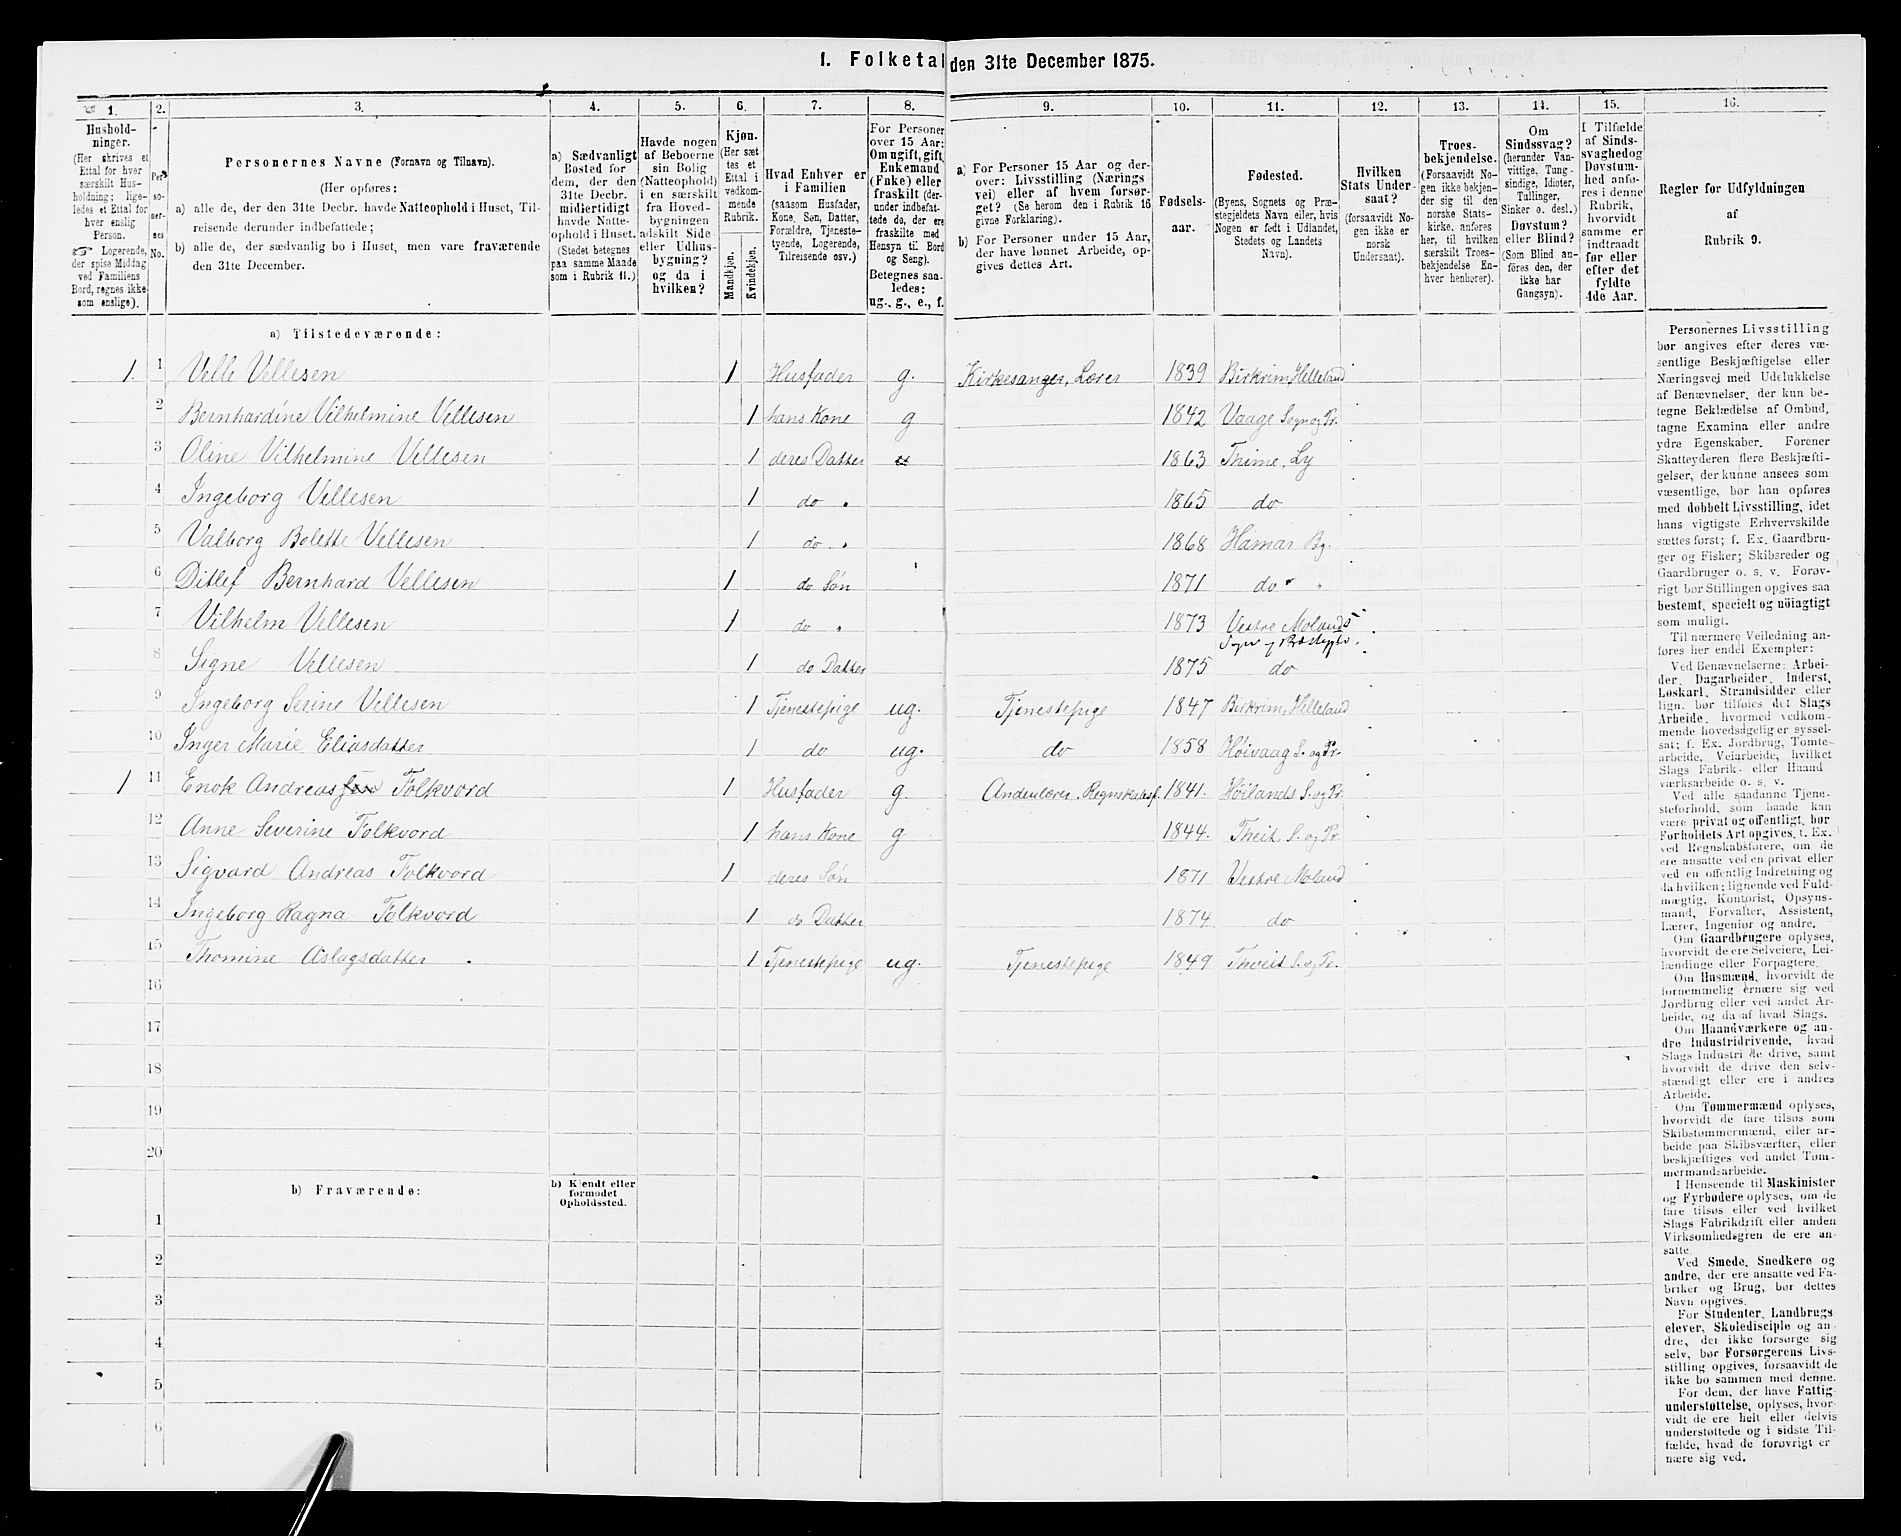 1. Folketal den 31te December 1875.
1. 2. 3. 4. 5. 6. 7. 8. 9. 10. 11. 12. 13. 14. 15. 16.
Hushold-
ninger.
(Her skrives et
Ettal for hver
særskilt Hus-
holdning; lige-
ledes et Ettal for
hver enslig
Person.
☞ Logerende,
der spise Middag
ved Familiens
Bord, regnes ikke
som enslige).
Per-
so-
ner-
nes
No.
Personernes Navne (Fornavn og Tilnavn).
(Her opføres:
a) alle de, der den 31te Decbr. havde Natteophold i Huset, Til-
reisende derunder indbefattede;
b) alle de, der sædvanlig bo i Huset, men vare fraværende
den 31te December.
a) Sædvanligt
Bosted for
dem, der den
31te Decbr.
midiertidigt
havde Natte-
ophold i Huset.
(Stedet betegnes
paa samme Maade
som i Rubrik 11.)
Havde nogen
af Beboerne
sin Bolig
(Natteophold)
i en særskilt
fra Hoved-
bygningen
adskilt Side
eller Udhus-
bygning?
og da i
hvilken?
Kjøn.
(Her sæt-
tes et
Ettal i
vedkom-
mende
Rubrik.
Mandkjøn.
Kvindekjøn.
Hvad Enhver er
i Familien
(saasom Husfader,
Kone, Søn, Datter,
Forældre, Tjeneste-
tyende, Logerende,
Tilreisende osv.)
For Personer
over 15 Aar:
Om ugift, gift,
Enkemand
(Enke) eller
fraskilt (der-
under indbefat-
tede de, der ere
fraskilte med
Hensyn til Bord
og Seng).
Betegnes saa-
ledes:
ug., g., e., f.
a) For Personer 15 Aar og der-
over: Livsstilling (Nærings
vei) eller af hvem forsør-
get? (Se herom den i Rubrik 16
givne Forklaring).
b) For Personer under 15 Aar,
der have lønnet Arbeide, op-
gives dettes Art.
Fødsels-
aar.
Fødested.
(Byens, Sognets og Præ-
stegjeldets Navn eller, hvis
Nogen er født i Udlandet,
Stedets og Landets
Navn).
Hvilken
Stats Under-
saat?
(forsaavidt No-
gen ikke er
norsk
Undersaat).
Troes-
bekjendelse.
(Forsaavidt No-
gen ikke bekjen-
der sig til den
norske Stats-
kirke, anføres
her, til hvilken
særskilt Troes-
bekjendelse En-
hver henhører).
Om
Sindssvag?
(herunder Van-
vittige, Tung-
sindige, Idioter,
Tullinger,
Sinker o. desl.)
Døvstum?
eller Blind?
(Som Blind an-
føres den, der
ikke har
Gangsyn).
I Tilfælde
af Sinds-
svaghed og
Døvstum-
hed anfø-
res i denne
Rubrik,
hvorvidt
samme er
indtraadt
før eller
efter det
fyldte
4de Aar.
Regler for Udfyldningen
af
Rubrik 9.
a) Tilstedeværende:
1. 1 Velle Vellesen 1 Husfader g. Kirkesanger, Lærer 1839 Birkrim, Helleland
2 Bernhardine Vilhelmine Vellesen 1 hans Kone g 1842 Vaage Sogn og Pr.
3 Oline Vilhelmine Vellesen 1 deres Datter 1863 Thime, Ly
4 Ingeborg Vellesen 1 do " 1865 do
5 Valborg Bolette Vellesen 1 do " 1868 Hamar By.
6 Ditlef Bernhard Vellesen 1 do Søn 1871 do "
7 Vilhelm Vellesen 1 do " 1873 Vestre Molands
Sogn og Præstegjeld.
8 Signe Vellesen 1 do Datter 1875 do
9 Ingeborg Serine Vellesen 1 Tjenestepige ug. Tjenestepige 1847 Birkrim, Helleland
10 Inger Marie Eliasdatter 1 do ug. do 1858 Høivaag S. og Pr.
1 11 Enok Andreas Folkvord 1 Husfader g. Andenlærer, 1841. Høilands S. og Pr
12 Anne Severine Folkvord 1 hans Kone g 1844. Theit, S. og Pr
13 Sigvard Andreas Folkvord 1 deres Søn 1871 Vestre Moland
14 Ingeborg Ragna Folkvord 1 do Datter 1874 do
15 Thomine Aslagsdatter 1 Tjenestepige ug. Tjenestepige 1849 Thveit S. og Pr.
16
17
18
19
20
b) Fraværende:
b) Kjendt eller
formodet
Opholdssted.
1
2
3
4
5
6
Personernes Livsstilling
bør angives efter deres væ-
sentlige Beskjæftigelse eller
Næringsvei med Udelukkelse
af Benævnelser, der kun be-
tegne Beklædelse af Ombud,
tagne Examina eller andre
ydre Egenskaber. Forener
Skatteyderen flere Beskjæfti-
gelser, der kunne ansees som
væsentlige, bør han opføres
med dobbelt Livsstilling, idet
hans vigtigste Erhvervskilde
sættes først; f. Ex. Gaardbru-
ger og Fisker; Skibsreder og
Gaardbruger o. s. v. Forøv-
rigt bør Stillingen opgives saa
bestemt, specielt og nöiagtigt
som muligt.
Til nærmere Veiledning an-
føres her endel Exempler:
Ved Benævnelserne: Arbei-
der, Dagarbeider, Inderst,
Løskarl, Strandsidder eller
lign. bør tilføies det Slags
Arbeide, hvormed vedkom-
mende hovedsagelig er syssel-
sat; f. Ex. Jordbrug, Tomte-
arbeide, Veiarbeide, hvilket
Slags Fabrik- eller Haand
værksarbeide o. s. v.
Ved alle saadanne Tjene-
steforhold, som baade kan
være privat og offentligt, bør
Forholdets Art opgives, t. Ex.
ved Regnskabsførere, om de
ere ansatte ved en privat eller
ved en offentlig Indretning og
da hvilken; lignende ved Fuld-
mægtig, Kontorist, Opsyns-
mand, Forvalter, Assistent,
Lærer, Ingeniør og andre.
Om Gaardbrugere oplyses,
hvorvidt de ere Selveiere, Lei-
lændinge eller Forpagtere.
Om Husmænd, hvorvidt de
fornemmelig ernære sig ved
Jordbrug eller ved andet Ar-
beide, og da af hvad Slags.
Om Haandværkere og an-
dre Industridrivende, hvad
Slags Industri de drive, samt
hvorvidt de drive den selv-
stændigt eller ere i andres
Arbeide.
Om Tømmermænd oplyses,
hvorvidt de fare tilsøs som
Skibstømmermænd, eller ar-
beide paa Skibsværfter, eller
beskjæftiges ved andet Tøm-
mermandsarbeide.
I Henseende til Maskinister
og Fyrbødere oplyses, om de
fare tilsøs eller ved hvilket
Slags Fabrikdrift eller anden
Virksomhedsgren de ere an-
satte.
Ved Smede, Snedkere og
andre, der ere ansatte ved Fa-
briker og Brug, bør dettes
Navn opgives.
For Studenter, Landbrugs
elever, Skoledisciple og an-
dre, der ikke forsørge sig
selv, bør Forsørgerens Livs-
stilling opgives, forsaavidt de
ikke bo sammen med denne.
For dem, der have Fattig-
understøttelse, oplyses, hvor-
vidt de ere helt eller delvis
understøttede og i sidste Til-
fælde, hvad de forøvrigt er
nære sig ved.